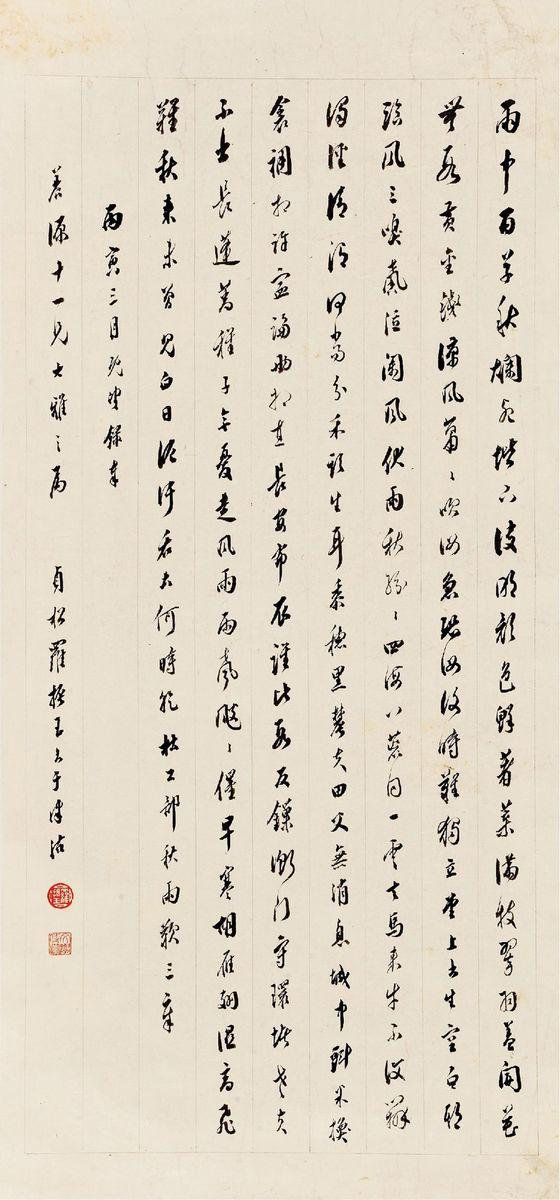 雨中百草秋爛死堦下決明顏色鮮著葉滿枝翠羽蓋開花
無數黃金錢涼風蕭〻吹汝急恐汝後時難獨立堂上書生空白頭
臨風三嗅馨泣闌風伏雨秋紛〻四海八荒同一雲去馬來牛不復辨
濁涇清渭何當分禾頭生耳黍穗黑農夫田父無消息城中㪷米換
衾裯相許寧論兩相直長安布衣誰比數反鏁衡門守環堵老夫
不出長蓬蒿稚子無憂走風雨雨聲颼〻催早寒胡雁翅濕高飛
難秋來未曾見白日泥汙后土何時乾杜工部秋雨歎三章
丙寅三月既望錄奉
善源十一兄大雅之屬 貞松羅振玉書于津沽